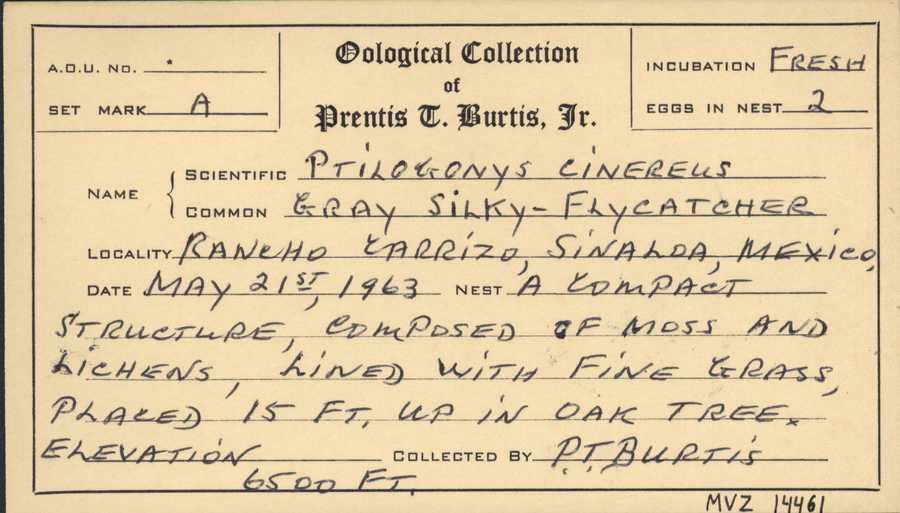 Oological Collection
of
Prentis T. Burtis, Jr.
A.O.U. No. *
SET MARK A
INCUBATION FRESH
EGGS IN NEST 2
NAME
SCIENTIFIC PTILOGONYS CINEREUS
COMMON GRAY SILKY-FLYCATCHER
LOCALITY RANCHO CARRIZO, SINALOA, MEXICO,
DATE MAY 21ST, 1963 NEST A COMPACT
STRUCTURE, COMPOSED OF MOSS AND
LICHENS, LINED WITH FINE GRASS,
PLACED 15 FT. UP IN OAK TREE.
ELEVATION COLLECTED BY P.T. BURTIS
6500 FT.
MVZ 14461